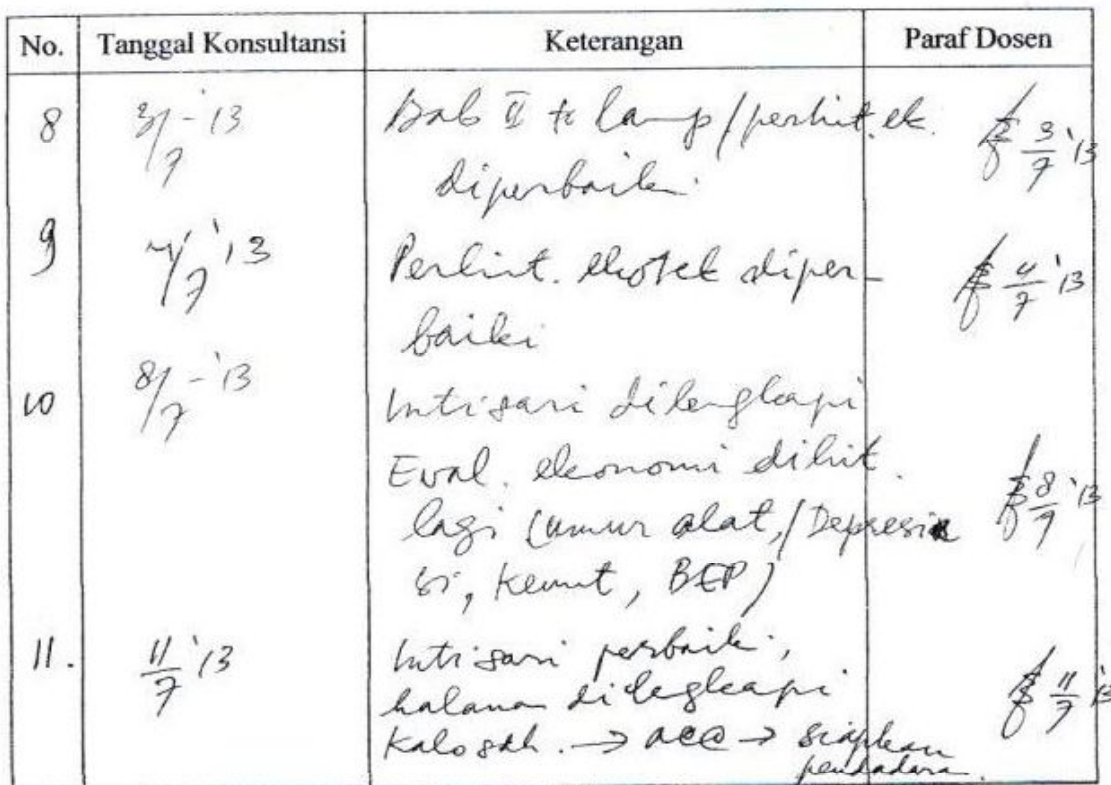 No. Tanggal Konsultansi Keterangan Paraf Dosen
8 3/7 - '13 Bab II + lamp/perhit. ek. 3/7 '13
diperbaiki
9 4/7 '13 Perhit. ekotek diper- 4/7 '13
baiki
10 8/7 - '13 Intisari dilengkapi
Eval. ekonomi dihit. 8/7 '13
lagi (umur alat,/Depresia
si, Keunt, BEP)
11. 11/7 '13 Intisari perbaiki,
halaman dilegkapi 11/7 '13
Kalo sdh. → acc → siapkan
pendadara